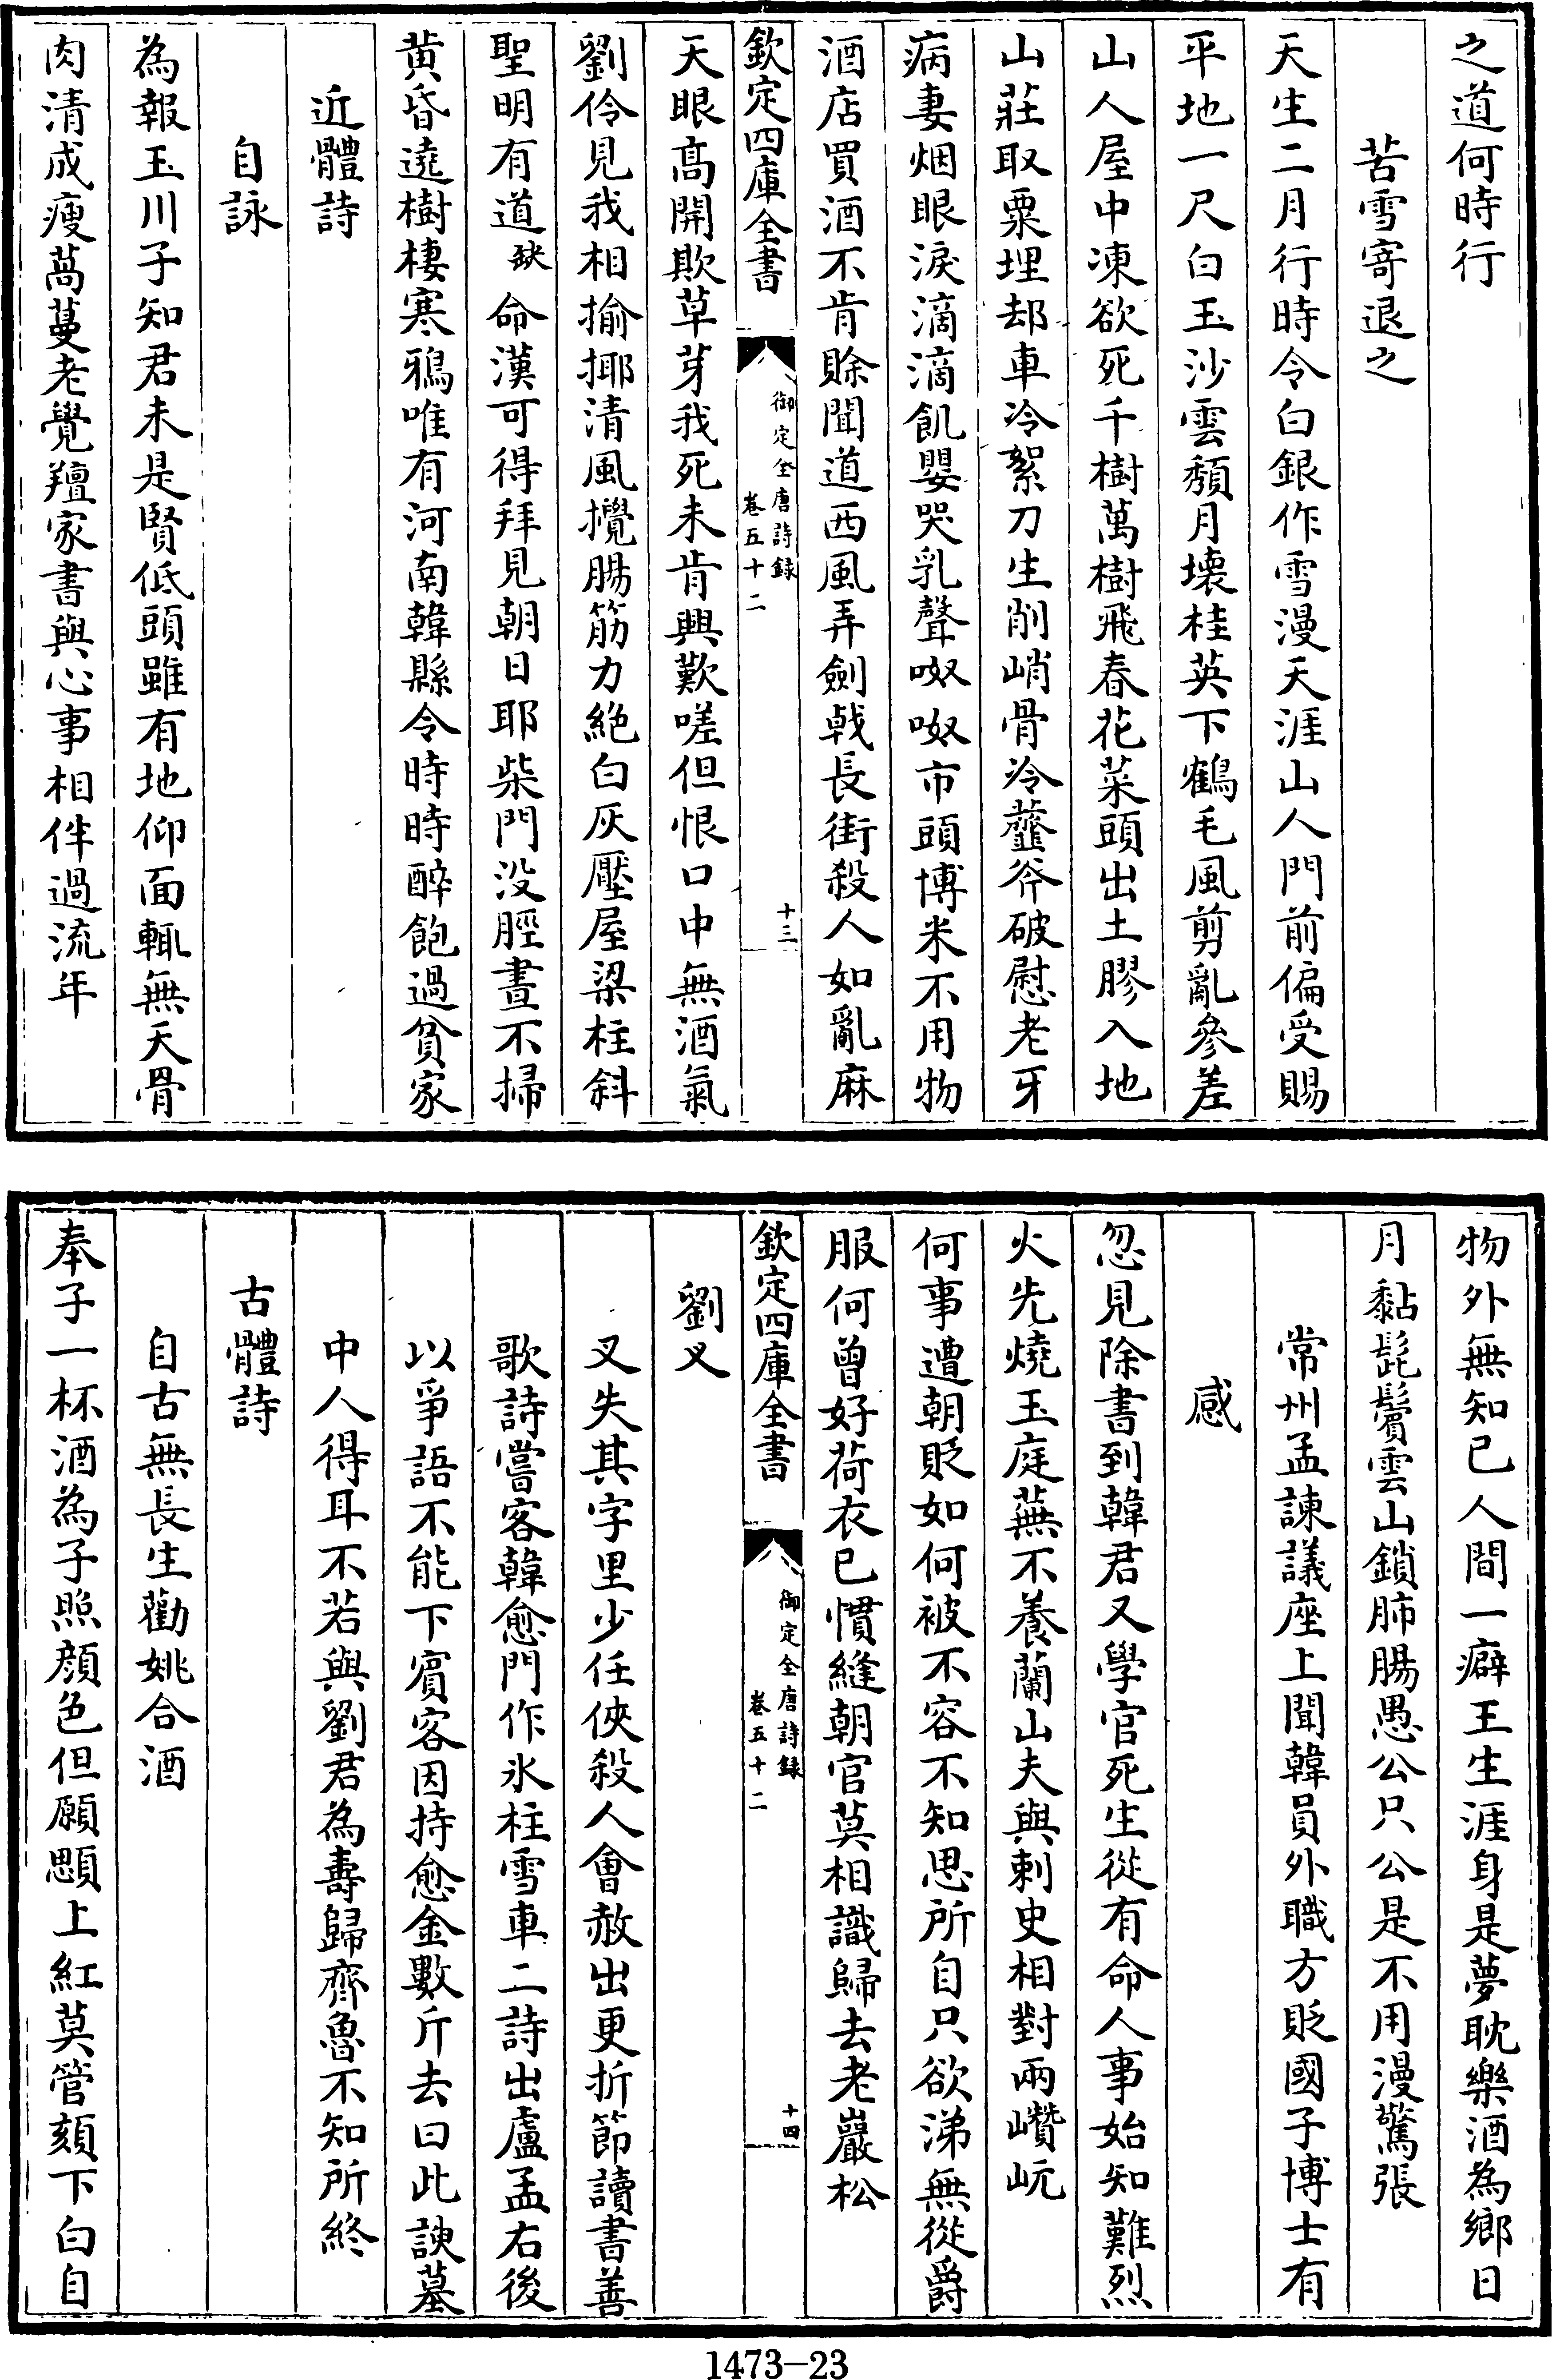 之道何時行
苦雪寄退之
天生二月行時令白銀作雪漫天涯山人門前偏受賜
平地一尺白玉沙雲頽月壊桂英下鶴毛風剪亂參差
山人屋中凍欲死千樹萬樹飛春花菜頭出土膠入地
山莊取粟埋却車冷絮刀生削峭骨冷虀斧破慰老牙
病妻烟眼淚滴滴飢嬰哭乳聲呶呶市頭博米不用物
酒店買酒不肯賒聞道西風弄劍戟長街殺人如亂麻
欽定四庫全書
御定全唐詩録
卷五十二
十三
天眼髙開欺草芽我死未肯興歎嗟但恨口中無酒氣
劉伶見我相揄揶清風攪腸筋力絶白灰壓屋梁柱斜
聖明有道缺命漢可得拜見朝日耶柴門没脛晝不掃
黄昏遶樹棲寒鴉唯有河南韓縣令時時醉飽過貧家
近體詩
自詠
為報玉川子知君未是賢低頭雖有地仰面輒無天骨
肉清成瘦萵蔓老覺羶家書與心事相伴過流年
物外無知已人間一癖王生涯身是夢耽樂酒為鄉日
月黏髭鬢雲山鎖肺腸愚公只公是不用漫驚張
常州孟諫議座上聞韓員外職方貶國子博士有
感
忽見除書到韓君又學官死生從有命人事始知難烈
火先燒玉庭蕪不養蘭山夫與刺史相對兩巑岏
何事遭朝貶如何被不容不知思所自只欲涕無從爵
服何曾好荷衣已慣縫朝官莫相識歸去老巖松
欽定四庫全書
御定全唐詩録
卷五十二
十四
劉叉
叉失其字里少任俠殺人會赦出更折節讀書善
歌詩嘗客韓愈門作氷柱雪車二詩出盧孟右後
以爭語不能下賓客因持愈金數斤去曰此諛墓
中人得耳不若與劉君為壽歸齊魯不知所終
古體詩
自古無長生勸姚合酒
奉子一杯酒為子照顔色但願顋上紅莫管頦下白自
1473-23